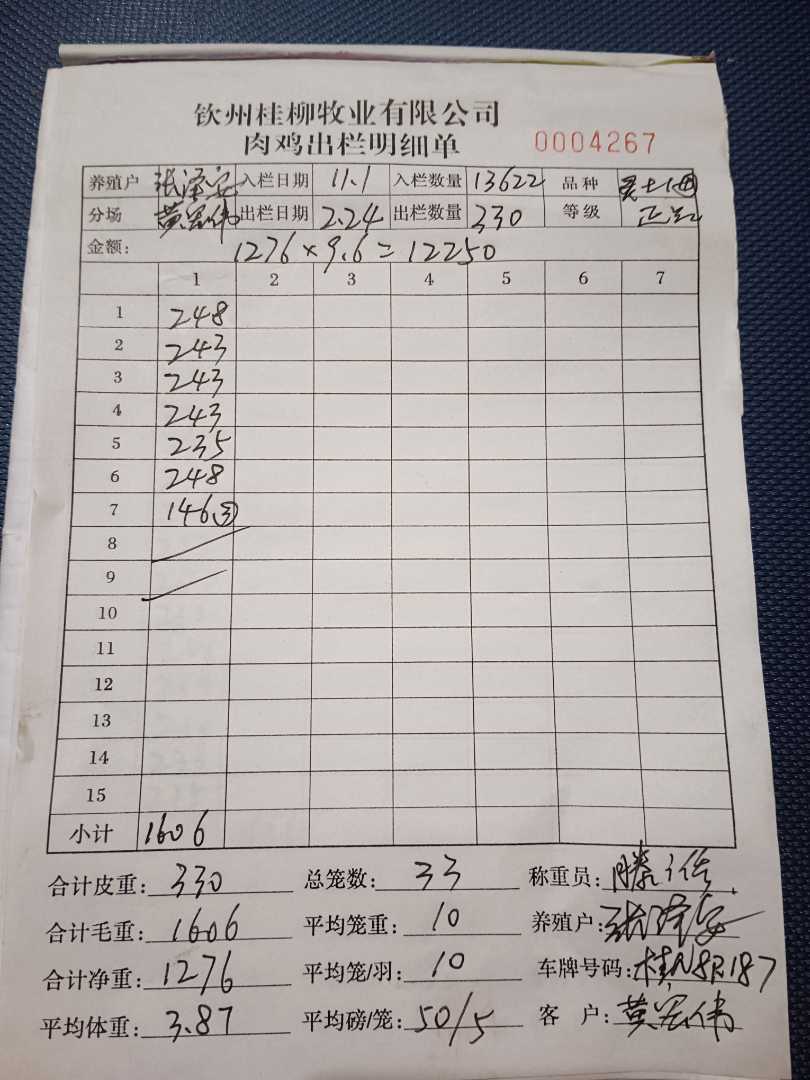 钦州桂柳牧业有限公司
肉鸡出栏明细单 0004267
养殖户 张泽安 入栏日期 11.1 入栏数量 13622 品种
分场 黄 伟 出栏日期 2.24 出栏数量 330 等级 正
金额: 1276×9.6=12250
1 2 3 4 5 6 7
1 248
2 243
3 243
4 243
5 235
6 248
7 146③
8
9
10
11
12
13
14
15
小计 1606
合计皮重: 330 总笼数: 33 称重员:
合计毛重: 1606 平均笼重: 10 养殖户: 张泽安
合计净重: 1276 平均笼/羽: 10 车牌号码: 桂N8R187
平均体重: 3.87 平均磅/笼: 50/5 客 户: 黄 伟